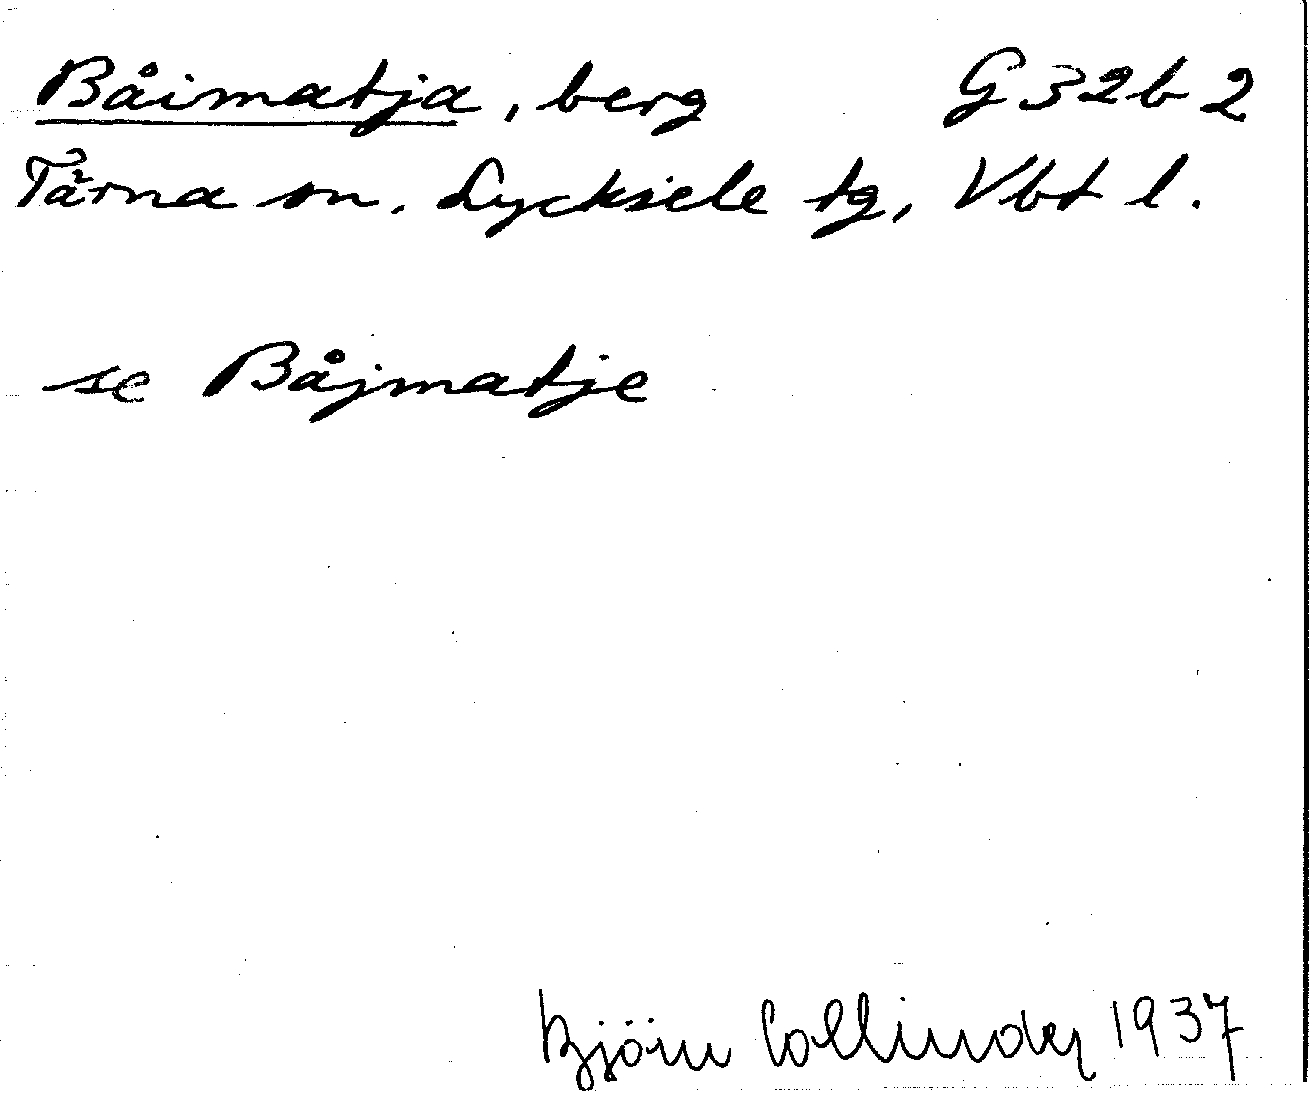 Båimatja, berg G32b2
Tärna sn. Lycksele tg, Vbt l.
se Båjmatje
Björn Collinder 1937